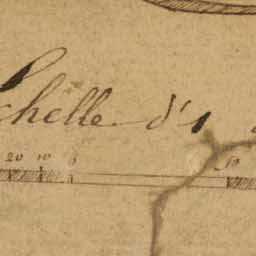 Echelle d'1
20 10